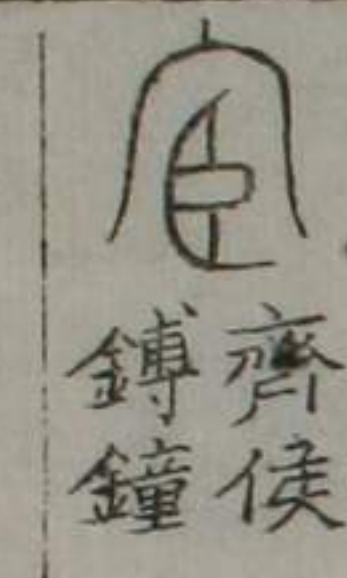 宦
齊侯
鎛鐘